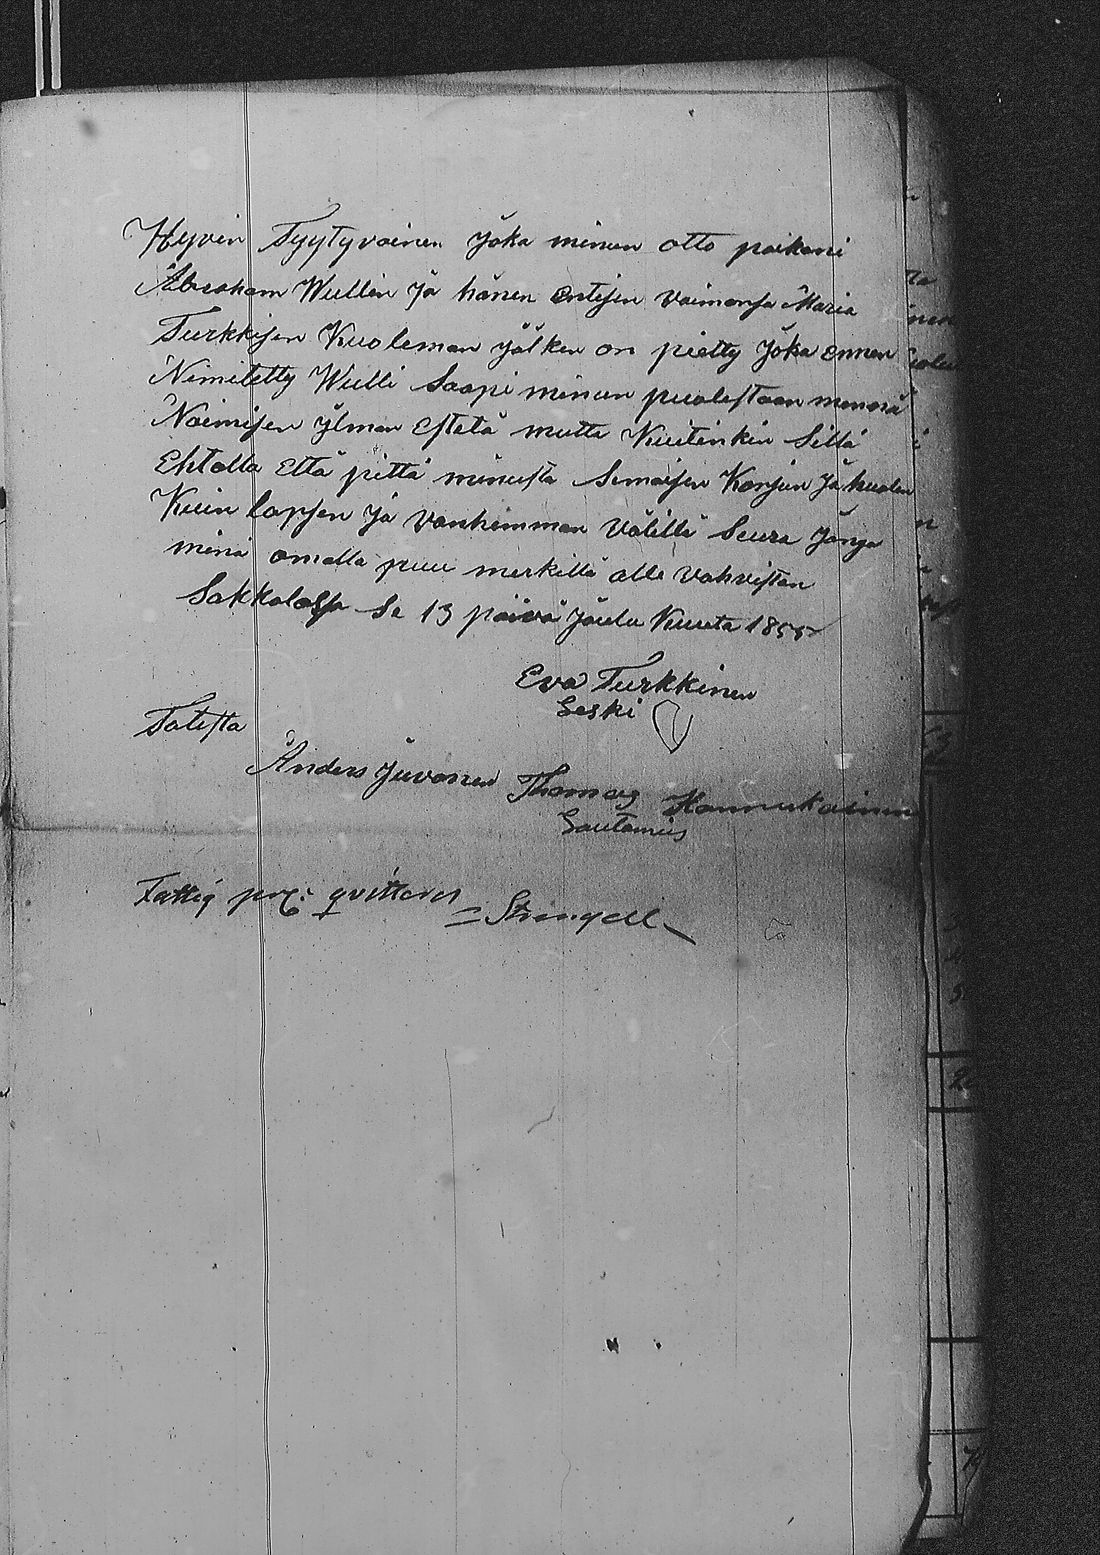 Hyvin Tyytyvainen Joka minun otto poikani
Abraham Wullin Ja hänen entisen vaimonsa Maria
Turkkisen Kuoleman Jälken on pietty Joka ennen
Nimitetty Wulli Saapi minun puolestaan mennä
Naimisen Ilman Estetä mutta Kuitenkin Sillä
Ehtolla Että pittä minusta Semaisen Korjun Ja huolen
Kuin lapsen Ja vanhemman välillä Seura
minä omalla puu merkillä alle vahvistan
Sakkolassa Se 13 päivä Joulu Kuuta 1855
Eva Turkkinen
Leski
Totista
Anders Juvonen Thomas Hannukainen
Lautamies
Fattig proc: qvitteras
= Strengell